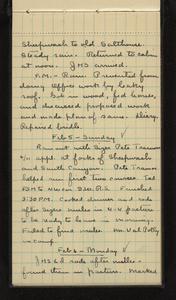 Sheepwash to old Salthouse.
Steady rain. Returned to cabin
at noon. JMS arrived.
P.M. - Rain. Prevented from
doing office work by leaky
roof. Got in wood, fed horses,
and discussed proposed work
and made plan of same. Diary.
Repaired bridle.
Feb 5 - Sunday
Ran out with Sizer Pete
app. at forks of Sheepwash
and South Canyon. Pete
helped run first two courses. Tied
to Sec. Finished
3:30 P.M. Cooked dinner and rode
after Sizer's mules in N.W. pasture
to be ready to leave in morning.
Failed to find mules. Mr. Val
in camp.
Feb 6 - Monday
JMS & I rode after mules -
found them in pasture. Marked